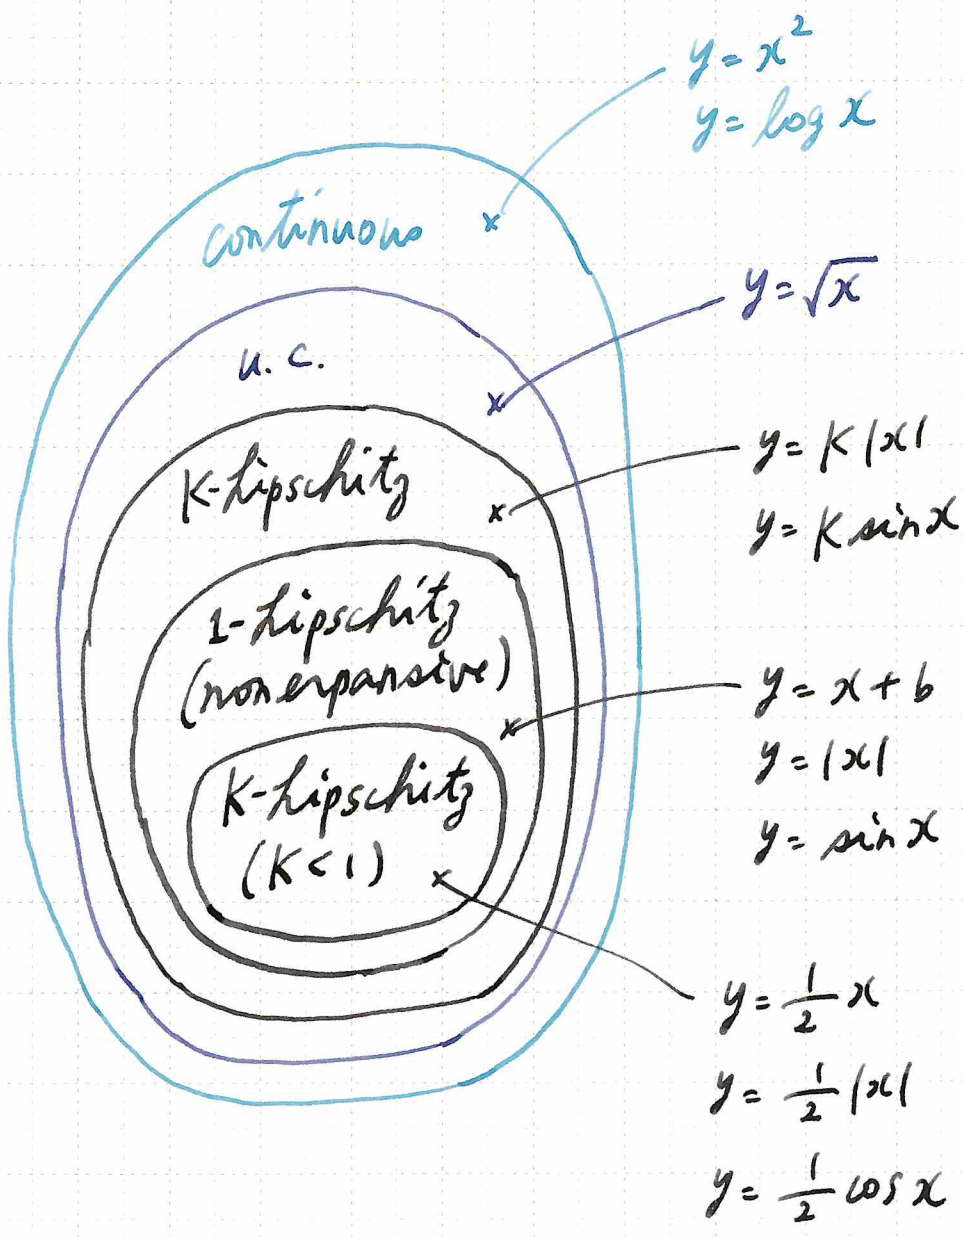 y = x²
y = log x
continuous
y = √x
u. c.
y = K |x|
K-Lipschitz
y = K sin x
1-Lipschitz
(nonexpansive)
y = x + b
y = |x|
K-Lipschitz
y = sin x
(K < 1)
y = 1/2 x
y = 1/2 |x|
y = 1/2 cos x